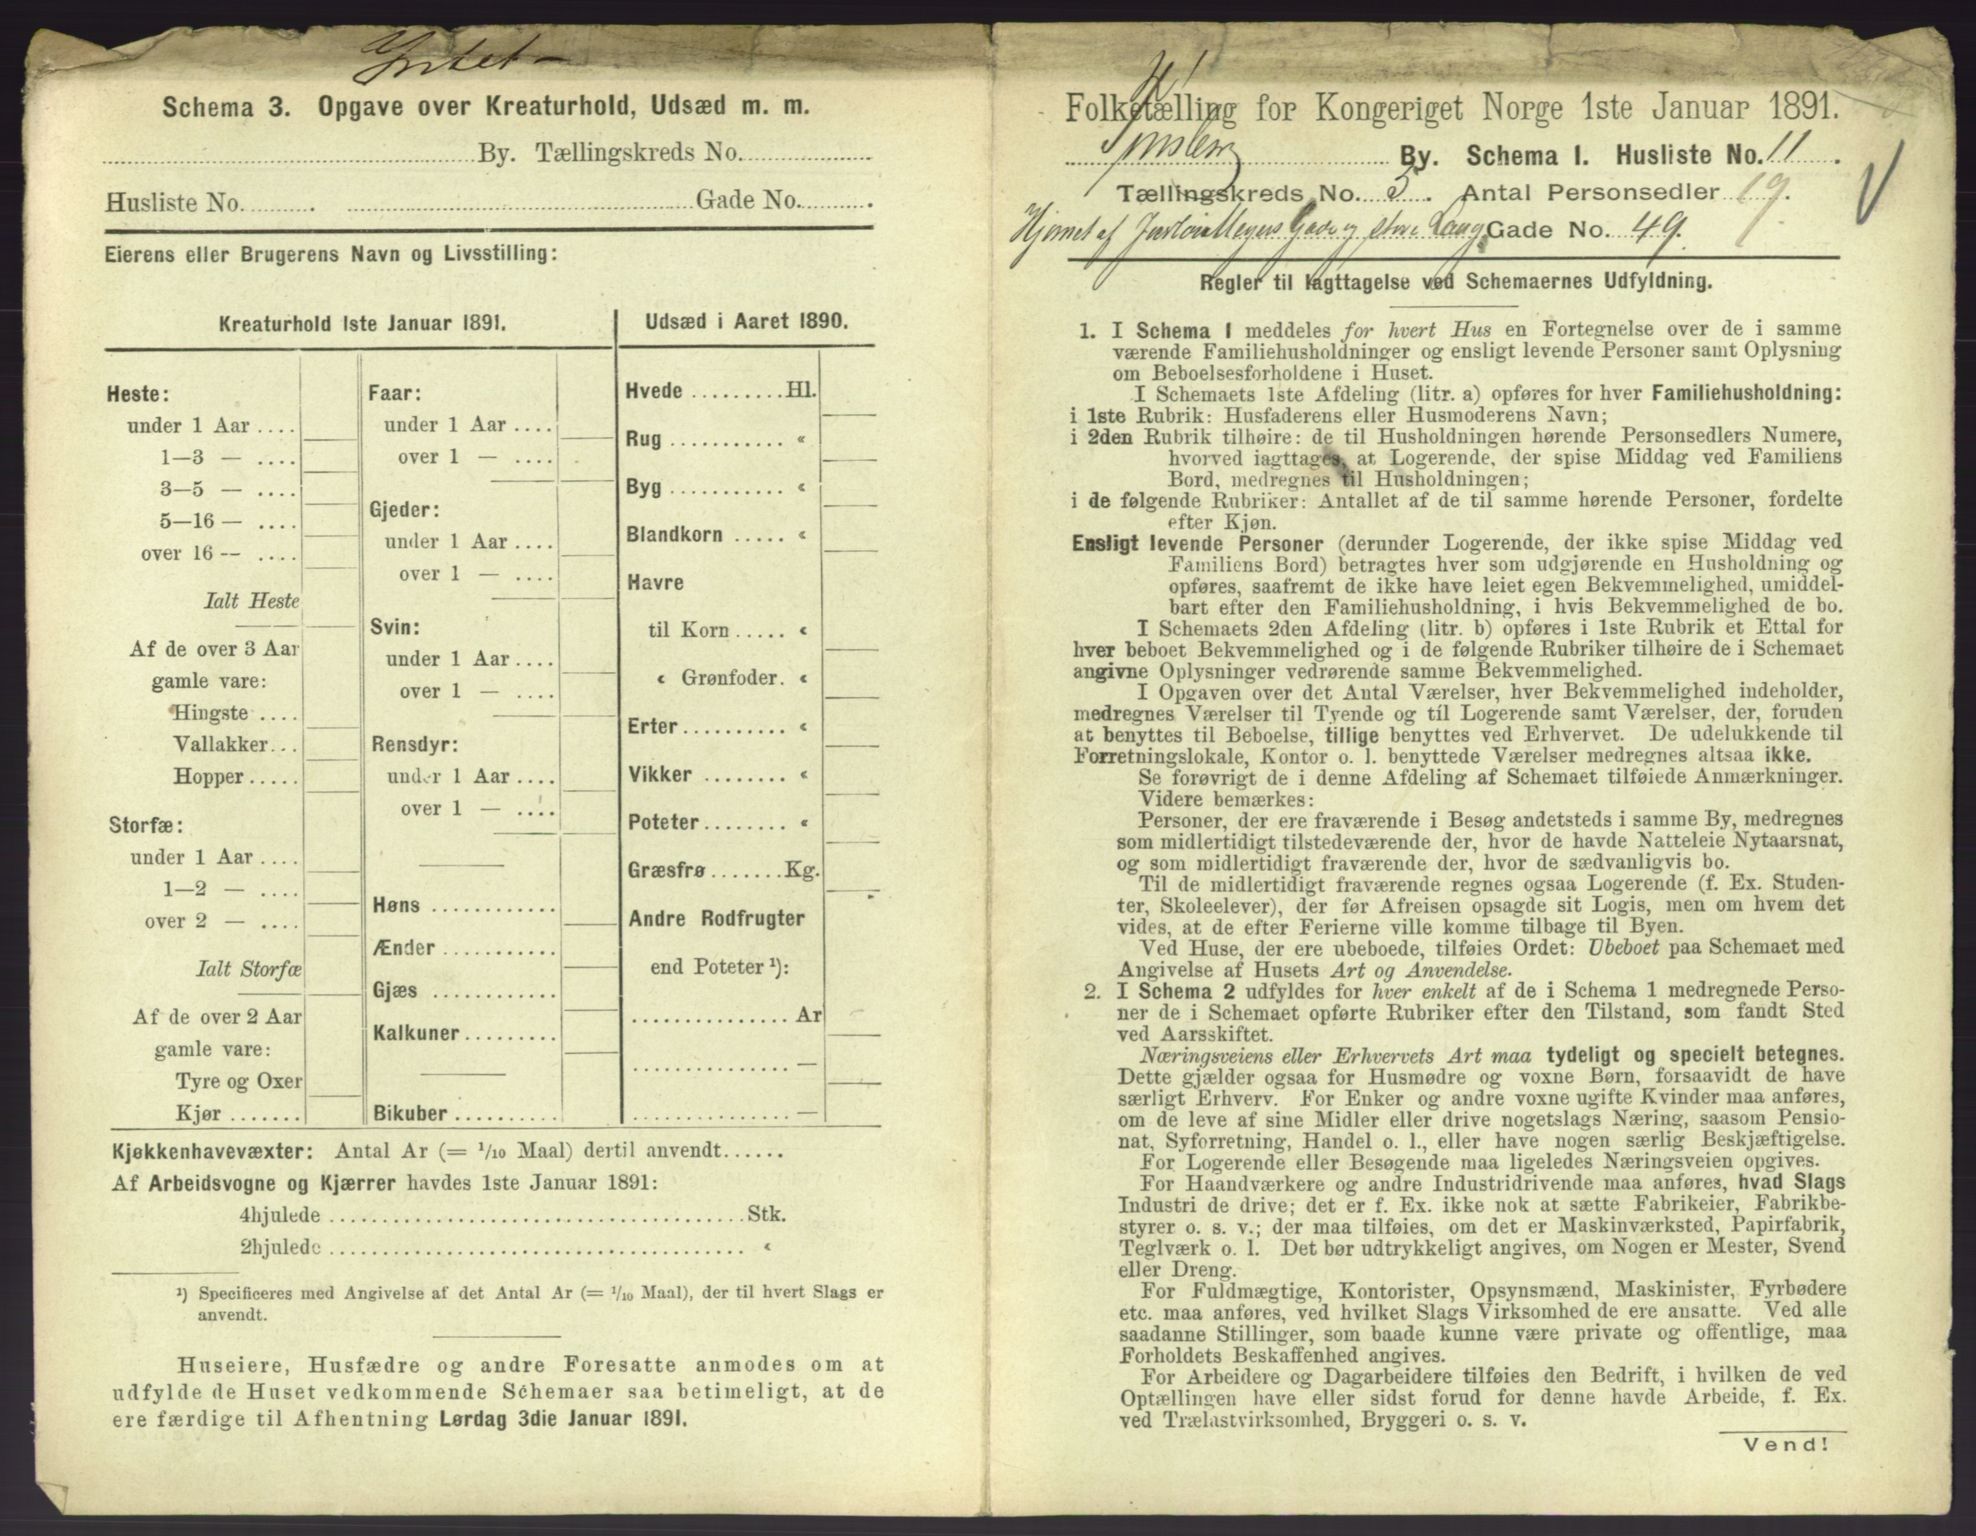 Intet
Schema 3. Opgave over Kreaturhold, Udsæd m. m.
By. Tællingskreds No.
Husliste No. Gade No.
Eierens eller Brugerens Navn og Livsstilling:
Kreaturhold 1ste Januar 1891.
Heste:
under 1 Aar
1—3 —
3—5 —
5—16 —
over 16 —
Ialt Heste
Af de over 3 Aar
gamle vare:
Hingste
Vallakker
Hopper
Storfæ:
under 1 Aar
1—2 —
over 2 —
Ialt Storfæ
Af de over 2 Aar
gamle vare:
Tyre og Oxer
Kjør
Faar:
under 1 Aar
over 1 —
Gjeder:
under 1 Aar
over 1 —
Svin:
under 1 Aar
over 1 —
Rensdyr:
under 1 Aar
over 1 —
Høns
Ænder
Gjæs
Kalkuner
Bikuber
Udsæd i Aaret 1890.
Hvede Hl.
Rug «
Byg «
Blandkorn «
Havre
til Korn «
« Grønfoder. «
Erter «
Vikker «
Poteter «
Græsfrø Kg.
Andre Rodfrugter
end Poteter ¹):
Ar
—
—
Kjøkkenhavevæxter: Antal Ar (= 1/10 Maal) dertil anvendt
Af Arbeidsvogne og Kjærrer havdes 1ste Januar 1891:
4hjulede Stk.
2hjulede «
¹) Specificeres med Angivelse af det Antal Ar (= 1/10 Maal), der til hvert Slags er
anvendt.
Huseiere, Husfædre og andre Foresatte anmodes om at
udfylde de Huset vedkommende Schemaer saa betimeligt, at de
ere færdige til Afhentning Lørdag 3die Januar 1891.
Folketælling for Kongeriget Norge 1ste Januar 1891.
By. Schema I. Husliste No. 11.
Tællingskreds No. 3. Antal Personsedler 19.
Hjørnet af Meyers Gade og store Lang Gade No. 49.
Regler til Iagttagelse ved Schemaernes Udfyldning.
1. I Schema I meddeles for hvert Hus en Fortegnelse over de i samme
værende Familiehusholdninger og ensligt levende Personer samt Oplysning
om Beboelsesforholdene i Huset.
I Schemaets 1ste Afdeling (litr. a) opføres for hver Familiehusholdning:
i 1ste Rubrik: Husfaderens eller Husmoderens Navn;
i 2den Rubrik tilhøire: de til Husholdningen hørende Personsedlers Numere,
hvorved iagttages, at Logerende, der spise Middag ved Familiens
Bord, medregnes til Husholdningen;
i de følgende Rubriker: Antallet af de til samme hørende Personer, fordelte
efter Kjøn.
Ensligt levende Personer (derunder Logerende, der ikke spise Middag ved
Familiens Bord) betragtes hver som udgjørende en Husholdning og
opføres, saafremt de ikke have leiet egen Bekvemmelighed, umiddel-
bart efter den Familiehusholdning, i hvis Bekvemmelighed de bo.
I Schemaets 2den Afdeling (litr. b) opføres i 1ste Rubrik et Ettal for
hver beboet Bekvemmelighed og i de følgende Rubriker tilhøire de i Schemaet
angivne Oplysninger vedrørende samme Bekvemmelighed.
I Opgaven over det Antal Værelser, hver Bekvemmelighed indeholder,
medregnes Værelser til Tyende og til Logerende samt Værelser, der, foruden
at benyttes til Beboelse, tillige benyttes ved Erhvervet. De udelukkende til
Forretningslokale, Kontor o. l. benyttede Værelser medregnes altsaa ikke.
Se forøvrigt de i denne Afdeling af Schemaet tilføiede Anmærkninger.
Videre bemærkes:
Personer, der ere fraværende i Besøg andetsteds i samme By, medregnes
som midlertidigt tilstedeværende der, hvor de havde Natteleie Nytaarsnat,
og som midlertidigt fraværende der, hvor de sædvanligvis bo.
Til de midlertidigt fraværende regnes ogsaa Logerende (f. Ex. Studen-
ter, Skoleelever), der før Afreisen opsagde sit Logis, men om hvem det
vides, at de efter Ferierne ville komme tilbage til Byen.
Ved Huse, der ere ubeboede, tilføies Ordet: Ubeboet paa Schemaet med
Angivelse af Husets Art og Anvendelse.
2. I Schema 2 udfyldes for hver enkelt af de i Schema 1 medregnede Perso-
ner de i Schemaet opførte Rubriker efter den Tilstand, som fandt Sted
ved Aarsskiftet.
Næringsveiens eller Erhvervets Art maa tydeligt og specielt betegnes.
Dette gjælder ogsaa for Husmødre og voxne Børn, forsaavidt de have
særligt Erhverv. For Enker og andre voxne ugifte Kvinder maa anføres,
om de leve af sine Midler eller drive nogetslags Næring, saasom Pensio-
nat, Syforretning, Handel o. l., eller have nogen særlig Beskjæftigelse.
For Logerende eller Besøgende maa ligeledes Næringsveien opgives.
For Haandværkere og andre Industridrivende maa anføres, hvad Slags
Industri de drive; det er f. Ex. ikke nok at sætte Fabrikeier, Fabrikbe-
styrer o. s. v.; der maa tilføies, om det er Maskinværksted, Papirfabrik,
Teglværk o. l. Det bør udtrykkeligt angives, om Nogen er Mester, Svend
eller Dreng.
For Fuldmægtige, Kontorister, Opsynsmænd, Maskinister, Fyrbødere
etc. maa anføres, ved hvilket Slags Virksomhed de ere ansatte. Ved alle
saadanne Stillinger, som baade kunne være private og offentlige, maa
Forholdets Beskaffenhed angives.
For Arbeidere og Dagarbeidere tilføies den Bedrift, i hvilken de ved
Optællingen have eller sidst forud for denne havde Arbeide, f. Ex.
ved Trælastvirksomhed, Bryggeri o. s. v.
Vend!